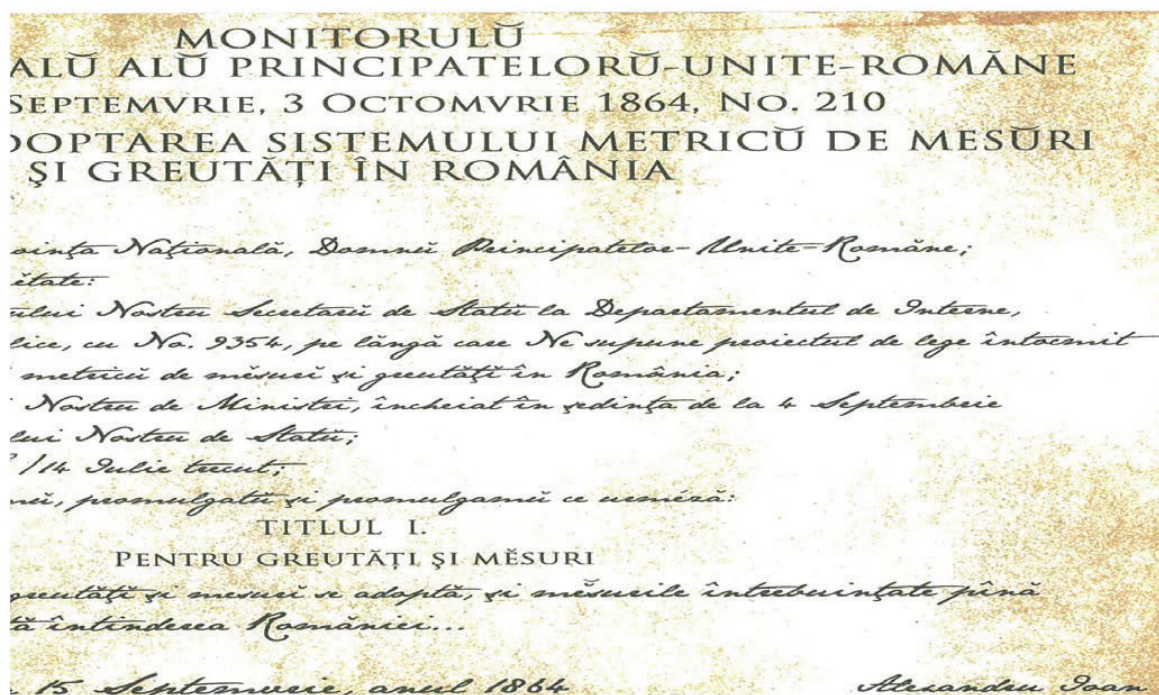 MONITORULŬ
ALŬ ALŬ PRINCIPATELORŬ-UNITE-ROMÂNE
SEPTEMVRIE, 3 OCTOMVRIE 1864, NO. 210
DOPTAREA SISTEMULUI METRICŬ DE MESŬRI
ŞI GREUTĂŢI ÎN ROMÂNIA
oinţa Naţională, Domnŭ Principatelor-Unite-Române;
ětate:
ului Nostru Secretarŭ de Statŭ la Departamentul de Interne,
lice, cu No. 9354, pe lângă care Ne supune proiectul de lege întocmit
metricŭ de mĕsuri şi greutăţi în România;
Nostru de Ministri, încheiat în şedinţa de la 4 Septembrie
lui Nostru de Statŭ;
/14 Iulie trecut;
mŭ, promulgatŭ şi promulgamŭ ce urméză:
TITLUL I.
PENTRU GREUTĂŢI ŞI MĔSURI
greutăţi şi mesuri se adoptă, şi mĕsurile întrebuinţate pînă
tă întinderea României...
15 Septemvrie, anul 1864
Alexandru Ioan